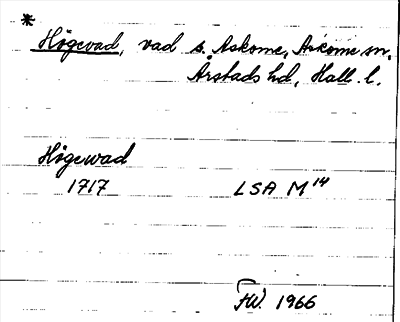 *
Högevad, vad s. Askome, Askome sn,
Årstads hd, Hall. l.
Högewad
1717 LSA M14
FW. 1966